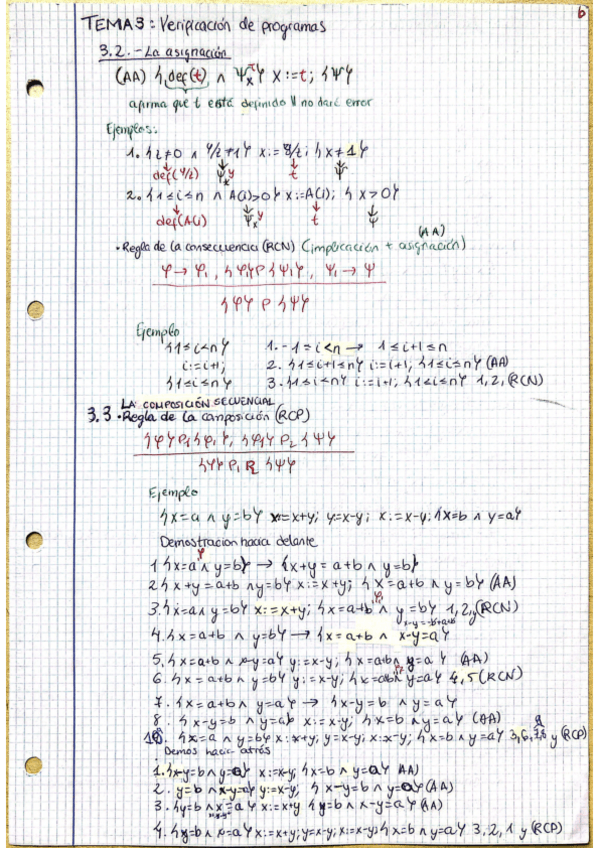 6
TEMA 3: Verificación de programas
3.2.- La asignación
(AA) {def(t) ∧ Ψₓᵗ} x:=t; {Ψ}
afirma que t está definido y no dará error
Ejemplos:
1. {z≠0 ∧ y/z≠1} x:= y/z; {x≠1}
def(y/z) Ψₓʸ t Ψ
2. {1≤i≤n ∧ A(i)>0} x:=A(i); {x>0}
def(A(i) Ψₓʸ t Ψ
(AA)
• Regla de la consecuencia (RCN) (implicación + asignación)
φ → φ₁, {φ₁} P {Ψ₁}, Ψ₁ → Ψ
{φ} P {Ψ}
Ejemplo
{1≤i<n} 1.- 1≤i<n → 1≤i+1≤n
i:=i+1; 2. {1≤i+1≤n} i:=i+1; {1≤i≤n} (AA)
{1≤i≤n} 3. {1≤i≤n} i:=i+1; {1≤i≤n} 1,2,(RCN)
LA COMPOSICIÓN SECUENCIAL
3.3 • Regla de la composición (RCP)
{φ} P₁ {φ₁}, {φ₁} P₂ {Ψ}
{φ} P₁ P₂ {Ψ}
Ejemplo
{x=a ∧ y=b} x:=x+y; y=x-y; x:=x-y; {x=b ∧ y=a}
Demostracion hacia delante
1 {x=a ∧ y=b} → {x+y = a+b ∧ y=b}
2 {x+y = a+b ∧ y=b} x:=x+y; {x=a+b ∧ y=b} (AA)
3. {x=a ∧ y=b} x:=x+y; {x=a+b ∧ y=b} 1,2,y(RCN)
4. {x=a+b ∧ y=b} → {x=a+b ∧ x-y=a}
5. {x=a+b ∧ x-y=a} y:=x-y; {x=a+b ∧ y=a} (AA)
6. {x=a+b ∧ y=b} y:=x-y; {x=a+b ∧ y=a} 4,5(RCN)
7. {x=a+b ∧ y=a} → {x-y=b ∧ y=a}
8. {x-y=b ∧ y=a} x:=x-y; {x=b ∧ y=a} (AA)
10. {x=a ∧ y=b} x:x+y; y=x-y; x:x-y; {x=b ∧ y=a} 3,6, y (RCP)
Demos hacia atrás
1. {x-y=b ∧ y=a} x:=x-y; {x=b ∧ y=a} (AA)
2. {y=b ∧ x-y=a} y:=x-y; {x-y=b ∧ y=a} (AA)
3. {y=b ∧ x=a} x:=x+y {y=b ∧ x-y=a} (AA)
4. {y=b ∧ x=a} x:=x+y; y=x-y; x:=x-y {x=b ∧ y=a} 3,2,1 y (RCP)